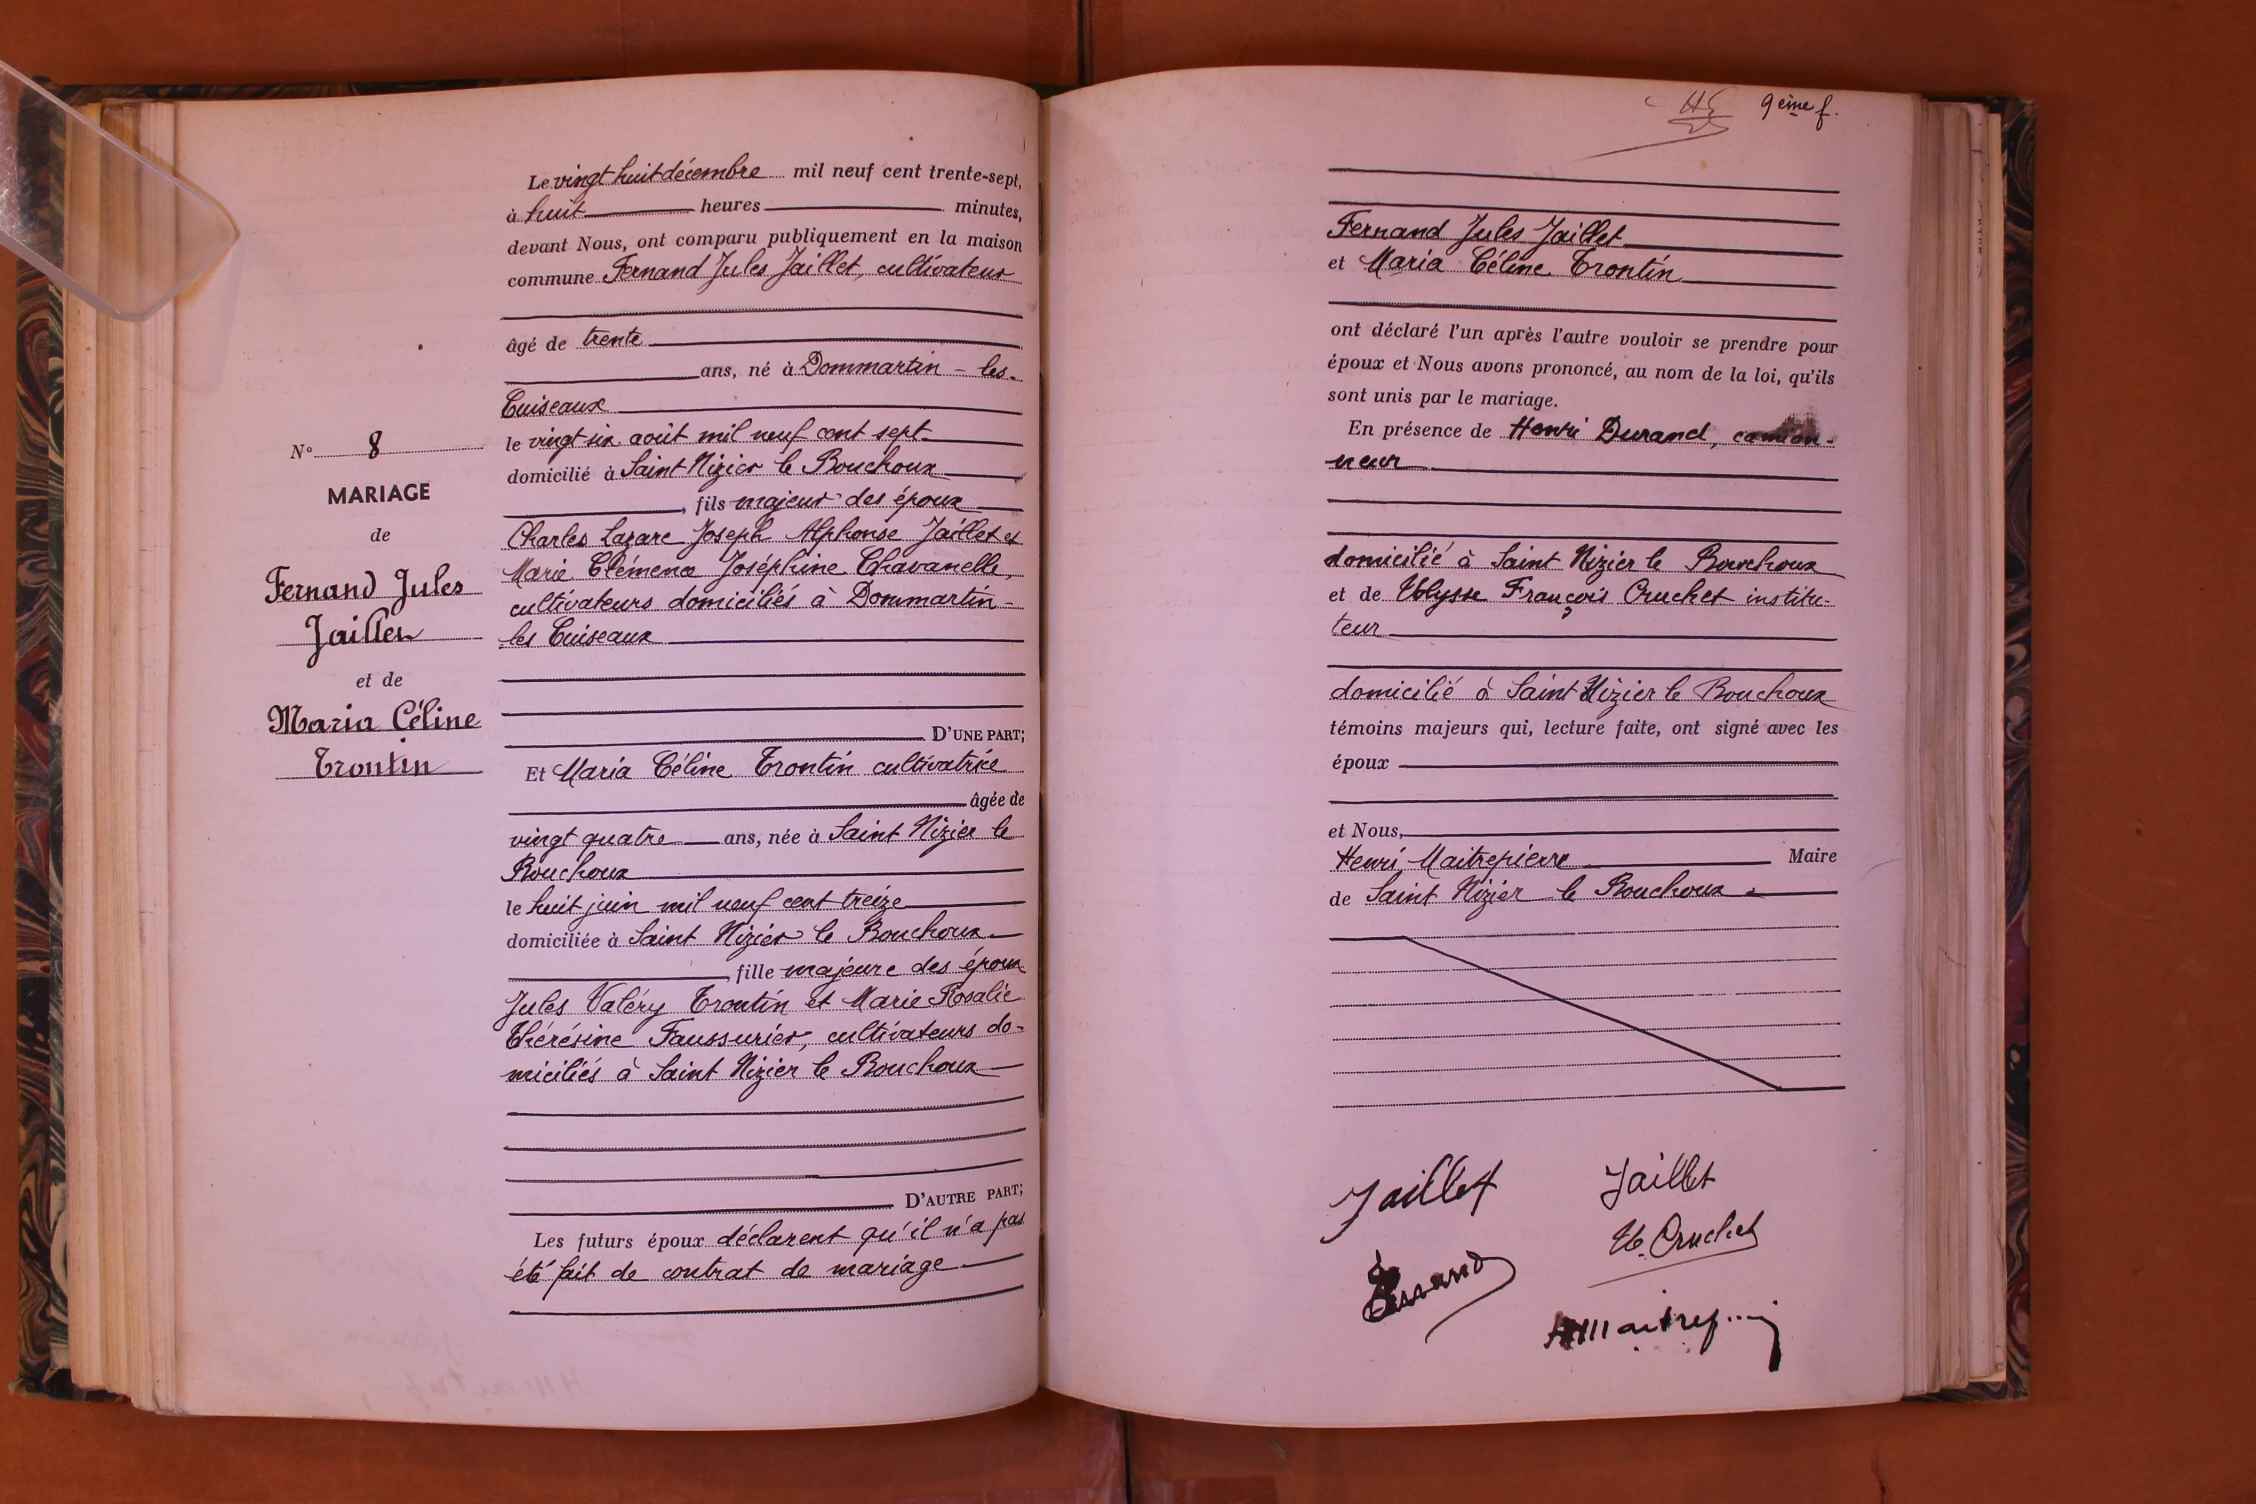 N° 8
MARIAGE
de
Fernand Jules
Jaillet
et de
Maria Céline
Trontin
Le vingt huit décembre mil neuf cent trente-sept,
à huit heures minutes,
devant Nous, ont comparu publiquement en la maison
commune Fernand Jules Jaillet, cultivateur
âgé de trente
ans, né à Dommartin - les -
Cuiseaux
le vingt six août mil neuf cent sept
domicilié à Saint Nizier le Bouchoux
, fils majeur des époux
Charles Lazare Joseph Alphonse Jaillet et
Marie Clémence Joséphine Chavanelle,
cultivateurs domiciliés à Dommartin -
les Cuiseaux
D'UNE PART;
Et Maria Céline Trontin cultivatrice
âgée de
vingt quatre ans, née à Saint Nizier le
Bouchoux
le huit juin mil neuf cent treize
domiciliée à Saint Nizier le Bouchoux
, fille majeure des époux
Jules Valéry Trontin et Marie Rosalie
Thérésine Faussurier, cultivateurs do-
miciliés à Saint Nizier le Bouchoux
D'AUTRE PART;
Les futurs époux déclarent qu'il n'a pas
été fait de contrat de mariage
9ème f.
Fernand Jules Jaillet
et Maria Céline Trontin
ont déclaré l'un après l'autre vouloir se prendre pour
époux et Nous avons prononcé, au nom de la loi, qu'ils
sont unis par le mariage.
En présence de Henri Durand, camion-
neur
domicilié à Saint Nizier le Bouchoux
et de Ulysse François Cruchet institu-
teur
domicilié à Saint Nizier le Bouchoux
témoins majeurs qui, lecture faite, ont signé avec les
époux
et Nous,
Henri Maitrepierre Maire
de Saint Nizier le Bouchoux.
Jaillet Jaillet
U. Cruchet
Durand